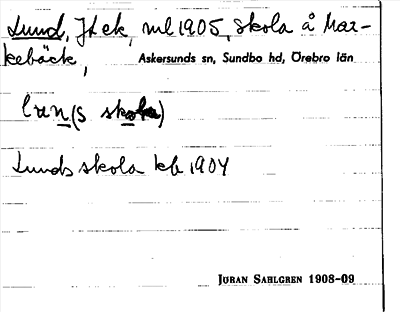 Lund, Jl ek, ml 1905, skola å Mar-
kebäck, Askersunds sn, Sundbo hd, Örebro län
lun(s skola)
Lunds skola kb 1904
JÖRAN SAHLGREN 1908-09